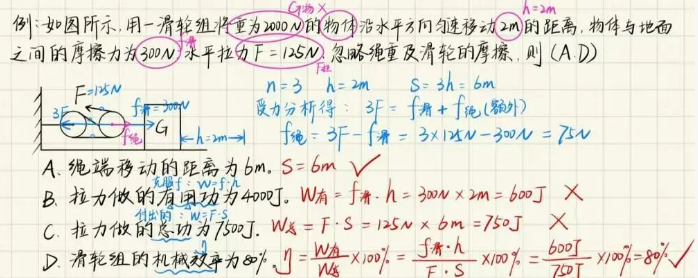 G物 × h=2m
例:如图所示,用一滑轮组将重为2000N的物体沿水平方向匀速移动2m的距离,物体与地面
之间的摩擦力为300N,水平拉力F=125N,忽略绳重及滑轮的摩擦,则(A.D)
f滑 F拉
n=3 h=2m S=3h=6m
F=125N
受力分析得: 3F=f滑+f绳(额外)
3F f滑=300N
f绳 G h=2m
f绳=3F-f滑=3×125N-300N=75N
A、绳端移动的距离为6m。S=6m ✓
克服f:W=f·h
B、拉力做的有用功为4000J。W有=f滑·h=300N×2m=600J ×
付出的:W=F·S
C、拉力做的总功为7500J。W总=F·S=125N×6m=750J ×
D、滑轮组的机械效率为80%。η=W有/W总×100%=f滑·h/F·S×100%=600J/750J×100%=80% ✓